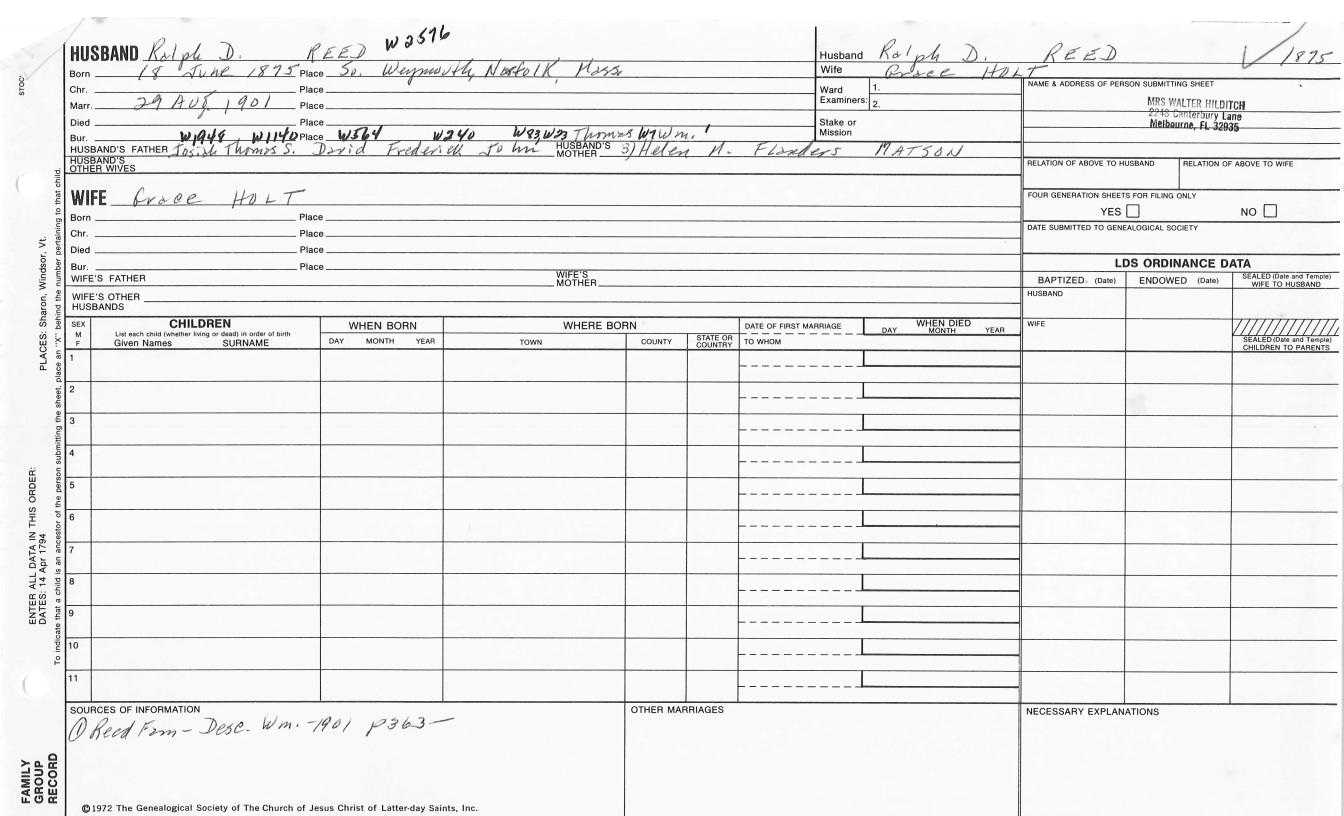 HUSBAND Ralph D. REED W2576
Born 18 June 1875 Place So. Weymouth, Norfolk, Mass
Chr. Place
Marr. 29 Aug, 1901 Place
Died Place
Bur. W1948, W1140 Place W564 W240 W83, W23 Thomas W7 Wm. 1
HUSBAND'S FATHER Josiah Thomas S. David Frederick John HUSBAND'S MOTHER 3) Helen M. Flanders MATSON
HUSBAND'S OTHER WIVES
WIFE Grace HOLT
Born Place
Chr. Place
Died Place
Bur. Place
WIFE'S FATHER WIFE'S MOTHER
WIFE'S OTHER HUSBANDS
Husband Ralph D. REED 1875
Wife Grace HOLT
Ward Examiners: 1.
2.
Stake or Mission
NAME & ADDRESS OF PERSON SUBMITTING SHEET
MRS WALTER HILDITCH
2248 Canterbury Lane
Melbourne, FL 32935
RELATION OF ABOVE TO HUSBAND RELATION OF ABOVE TO WIFE
FOUR GENERATION SHEETS FOR FILING ONLY
YES NO
DATE SUBMITTED TO GENEALOGICAL SOCIETY
LDS ORDINANCE DATA
BAPTIZED (Date) ENDOWED (Date) SEALED (Date and Temple) WIFE TO HUSBAND
HUSBAND
WIFE
SEALED (Date and Temple) CHILDREN TO PARENTS
SEX M F
CHILDREN
List each child (whether living or dead) in order of birth
Given Names SURNAME
WHEN BORN
DAY MONTH YEAR
WHERE BORN
TOWN COUNTY STATE OR COUNTRY
DATE OF FIRST MARRIAGE
TO WHOM
WHEN DIED
DAY MONTH YEAR
1
2
3
4
5
6
7
8
9
10
11
SOURCES OF INFORMATION
① Reed Fam - Desc. Wm. - 1901 p363
OTHER MARRIAGES
NECESSARY EXPLANATIONS
©1972 The Genealogical Society of The Church of Jesus Christ of Latter-day Saints, Inc.
STOC
PLACES: Sharon, Windsor, Vt.
To indicate that a child is an ancestor of the person submitting the sheet, place an "X" behind the number pertaining to that child.
ENTER ALL DATA IN THIS ORDER:
DATES: 14 Apr 1794
FAMILY
GROUP
RECORD